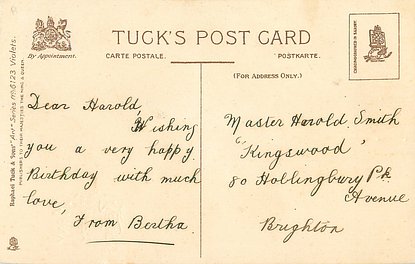 TUCK'S POST CARD
By Appointment.
CARTE POSTALE.
POSTKARTE.
(FOR ADDRESS ONLY.)
Raphael Tuck & Sons' "Art" Series No. 6123 Violets.
PUBLISHERS TO THEIR MAJESTIES THE KING & QUEEN.
Dear Harold,
Wishing
you a very happy
Birthday with much
love,
From Bertha.
Master Harold Smith
"Kingswood"
80 Hollingbury Pk
Avenue
Brighton